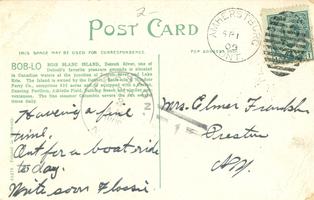 2
POST CARD
THIS SPACE MAY BE USED FOR CORRESPONDENCE.
FOR ADDRESS
AMHERSTBURG
SP 1
09
ONT.
BOB-LO BOIS BLANC ISLAND, Detroit River, one of
Detroit's favorite pleasure grounds is situated
in Canadian waters at the junction of Detroit River and Lake
Erie. The Island is owned by the Detroit, Belle Isle
Ferry Co., comprises 230 acres and is equipped with a
Dancing Pavilion, Athletic Field, Bathing Beach and
The fine steamer Columbia covers the
times daily.
Having a fine
time.
Out for a boat ride
to day.
Write soon Flossie
Mrs. Elmer Franklin
Preston